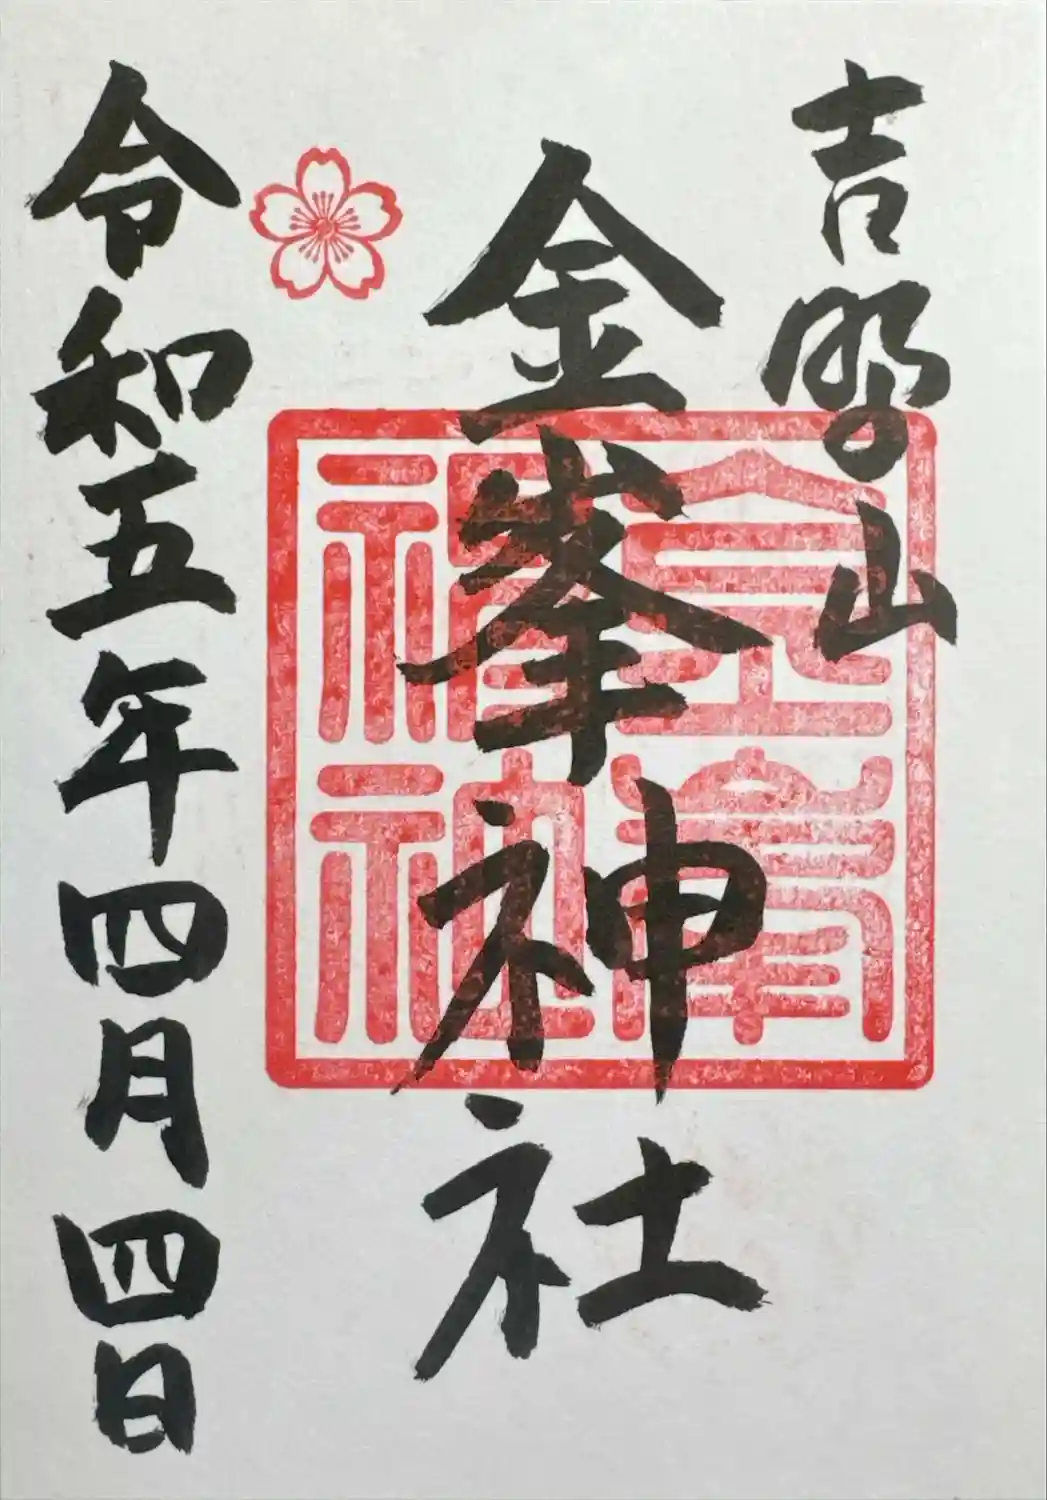 吉野山
金峯神社
金峯
神社
令和五年四月四日